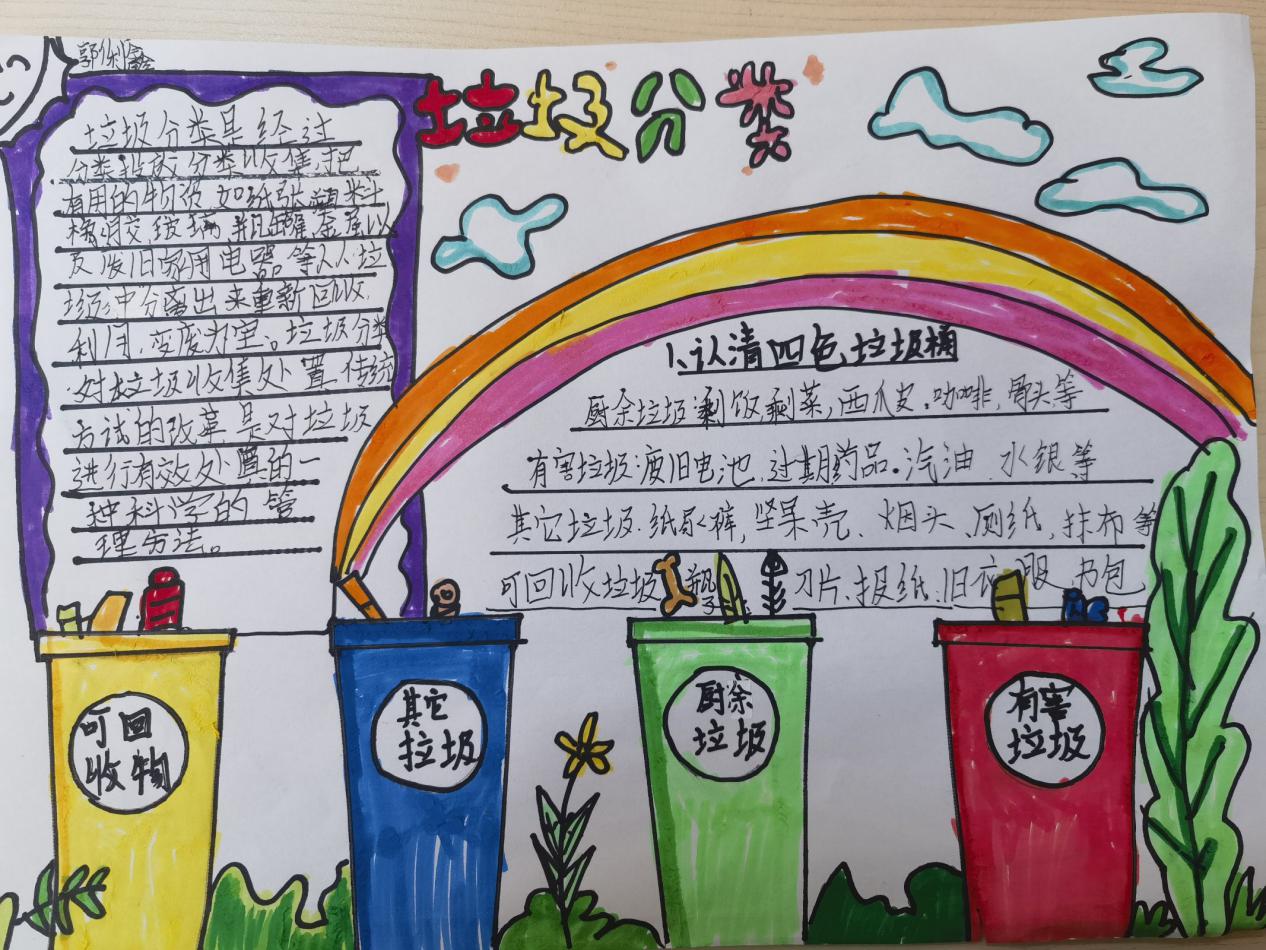 郭俐鑫
垃圾分类
垃圾分类是经过
分类投放分类收集,把
有用的物资,如纸张塑料
橡胶,玻璃,瓶罐,金属以
及废旧家用电器等从垃
圾中分离出来重新回收,
利用,变废为宝。垃圾分类
对垃圾收集处置传统
方试的改革,是对垃圾
进行有效处置的一
种科学的管
理方法。
1、认清四色垃圾桶
厨余垃圾剩饭剩菜,西瓜皮.咖啡,骨头等
有害垃圾:废旧电池,过期药品.汽油 水银等
其它垃圾:纸尿裤,坚果壳、烟头、厕纸,抹布等
可回收垃圾 瓶子 刀片、报纸、旧衣服 书包
可回
收物
其它
垃圾
厨余
垃圾
有害
垃圾